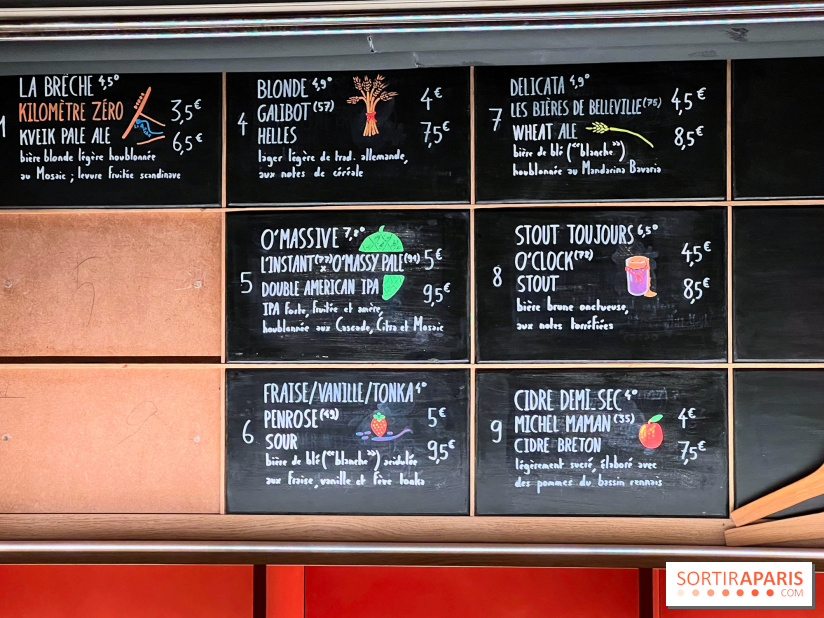 1
LA BRÈCHE 4,5°
KILOMÈTRE ZÉRO
KVEIK PALE ALE
3,5€
6,5€
bière blonde légère houblonnée
au Mosaic ; levure fruitée scandinave
4
BLONDE 4,9°
GALIBOT (57)
HELLES
4€
7,5€
lager légère de trad. allemande,
aux notes de céréale
7
DELICATA 4,9°
LES BIÈRES DE BELLEVILLE (75)
WHEAT ALE
4,5€
8,5€
bière de blé (“blanche”)
houblonnée au Mandarina Bavaria
5
O'MASSIVE 7,8°
L'INSTANT (77) x O'MASSY PALE (91)
DOUBLE AMERICAN IPA
5€
9,5€
IPA forte, fruitée et amère,
houblonnée aux Cascade, Citra et Mosaic
8
STOUT TOUJOURS 6,5°
O'CLOCK (78)
STOUT
4,5€
8,5€
bière brune onctueuse,
aux notes torréfiées
6
FRAISE/VANILLE/TONKA 4°
PENROSE (49)
SOUR
5€
9,5€
bière de blé (“blanche”) acidulée
aux fraise, vanille et fève tonka
9
CIDRE DEMI-SEC 4°
MICHEL MAMAN (35)
CIDRE BRETON
4€
7,5€
légèrement sucré, élaboré avec
des pommes du bassin rennais
SORTIRAPARIS
.COM